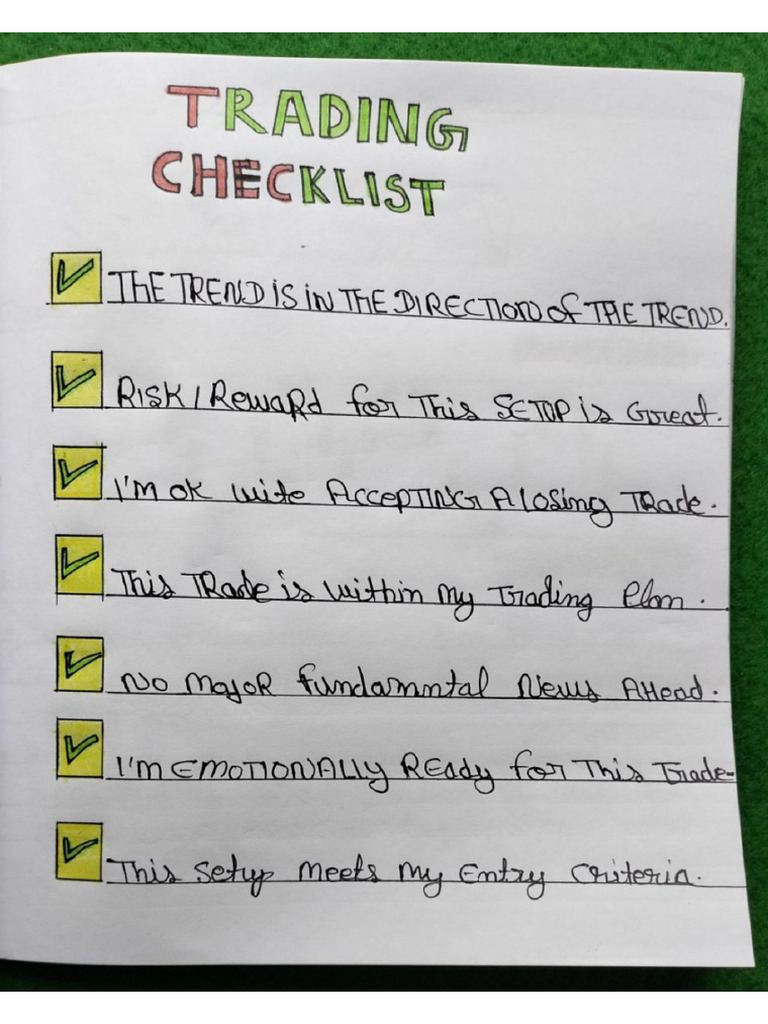 TRADING
CHECKLIST
THE TREND IS IN THE DIRECTION OF THE TREND.
RISK/Reward for This SETUP is Great.
I'm OK with ACCEPTING A losing TRade.
This TRade is within my Trading Plan.
NO MajoR fundamntal News AHead.
I'm EMOTIONALLY REady for This Trade-
This Setup Meets My Entry Criteria.